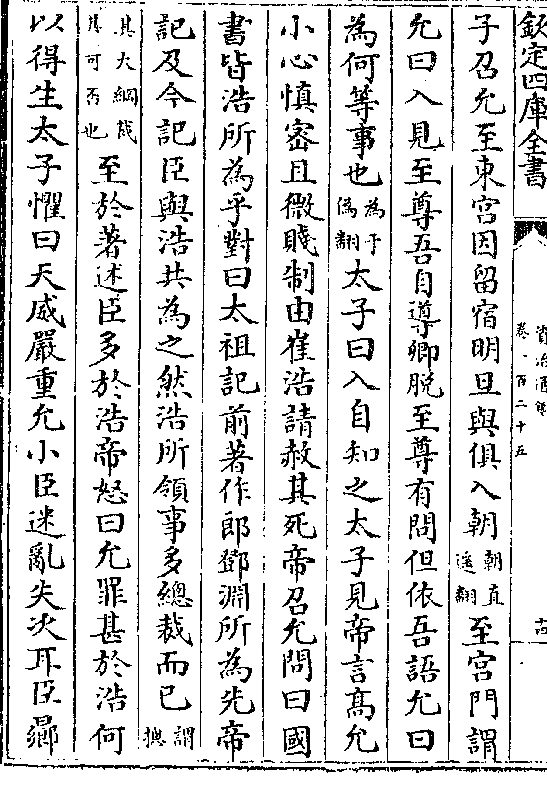 欽定四庫全書
資治通鑑
卷一百二十五
十四
子召允至東宮因留宿明旦與俱入朝朝直遥翻至宮門謂
允曰入見至尊吾自導卿脱至尊有問但依吾語允曰
為何等事也為于偽翻太子曰入自知之太子見帝言髙允
小心慎宻且微賤制由崔浩請赦其死帝召允問曰國
書皆浩所為乎對曰太祖記前著作郎鄧淵所為先帝
記及今記臣與浩共為之然浩所領事多總裁而已謂總
其大綱裁其可否也至於著述臣多於浩帝怒曰允罪甚於浩何
以得生太子懼曰天威嚴重允小臣迷亂失次耳臣曏